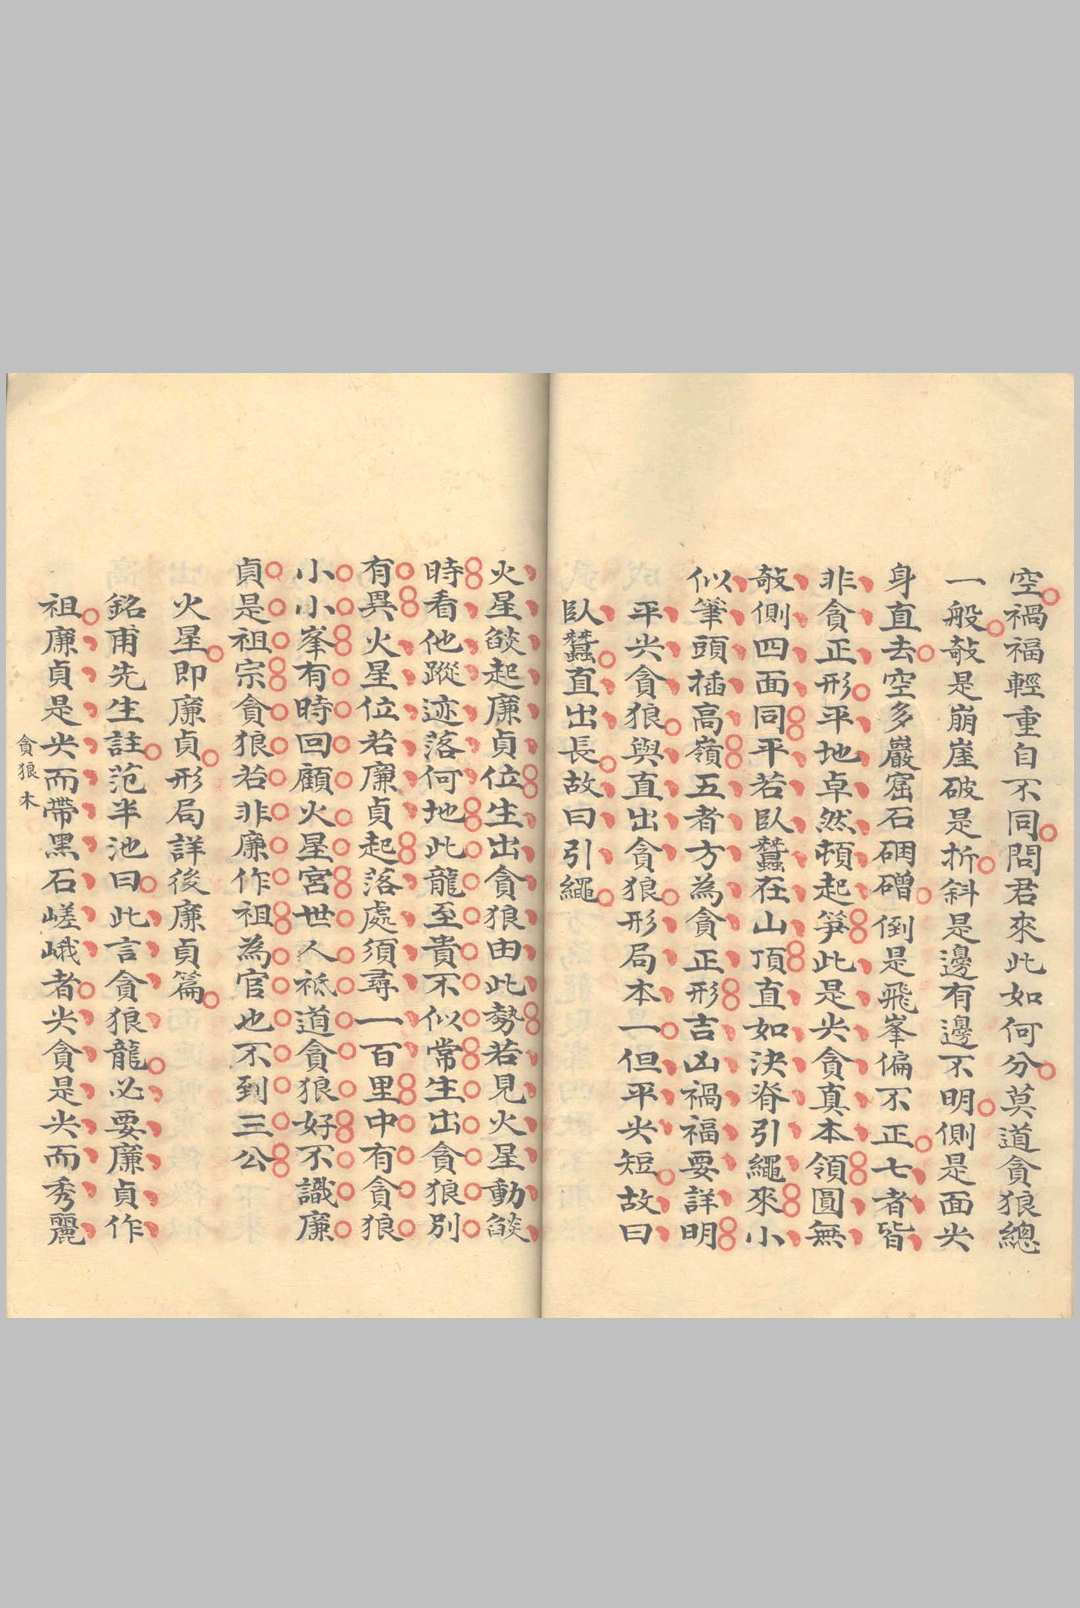 空禍福輕重自不同問君來此如何分莫道貪狼總
一般敧是崩崖破是折斜是邊有邊不明側是面尖
身直去空多巖窟石硱磳倒是飛峯偏不正七者皆
非貪正形平地卓然頓起筍此是尖貪真本領圓無
敧側四面同平若臥蠶在山頂直如決脊引繩來小
似筆頭插高嶺五者方為貪正形吉凶禍福要詳明
平尖貪狼與直出貪狼形局本一但平尖短故曰
臥蠶直出長故曰引繩
火星燄起廉貞位生出貪狼由此勢若見火星動燄
時看他蹤迹落何地此龍至貴不似常生出貪狼別
有異火星位若廉貞起落處須尋一百里中有貪狼
小小峯有時回顧火星宮世人祗道貪狼好不識廉
貞是祖宗貪狼若非廉作祖為官也不到三公
火星即廉貞形局詳後廉貞篇
銘甫先生註范半池曰此言貪狼龍必要廉貞作
祖廉貞是尖而帶黑石嵯峨者尖貪是尖而秀麗
貪狼木